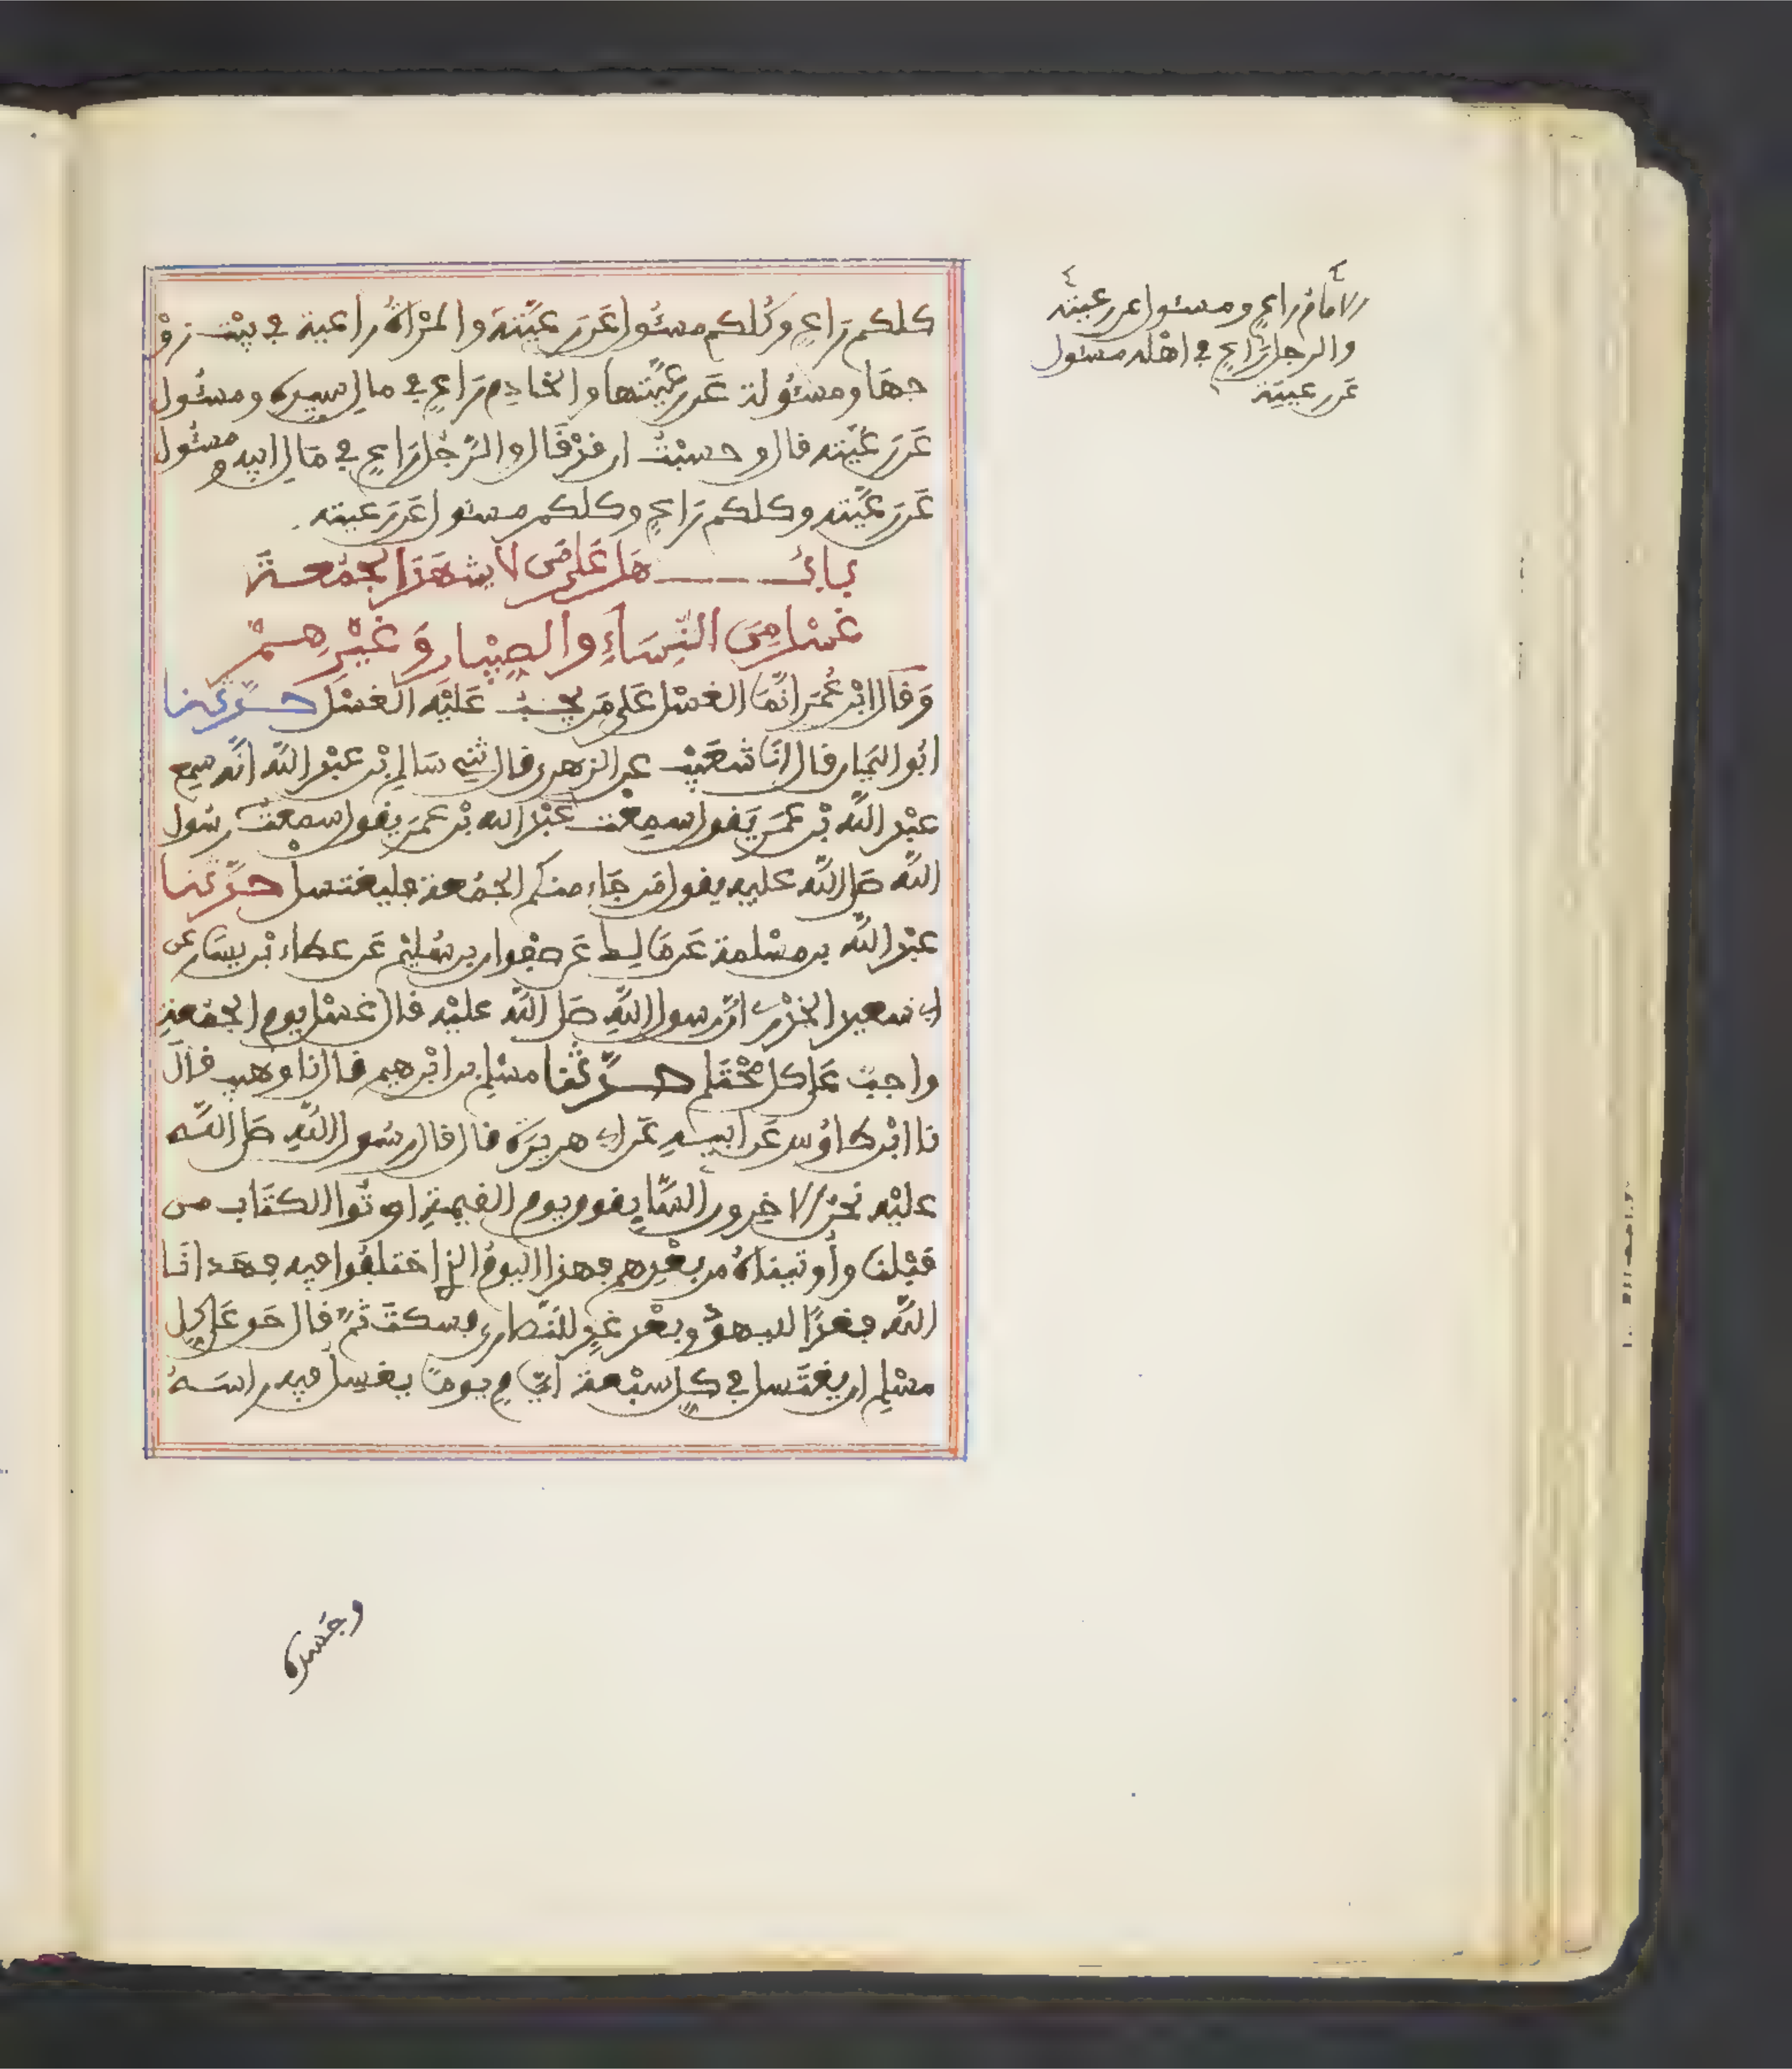 كلكم رَاعٍ وكُلكم مسئُول عَن رَعِيَّتهَ والمَرْأةُ راعية في بيْت زوْ
جهَا ومسئُولة عَن رعيَّتها والخادِم رَاعٍ في مال سيده ومسئُول
عَن رَعيَّته قال وحسبْتُ ان قدْ قَال والرَّجُل رَاعٍ في مَال ابيه ومسئُول
عَن رَعيَّته وكلكم رَاعٍ وكلكم مسئول عَن رَعيته
بابُ هَل عَلى مَن لا يشهَد الجمُعةَ
غسْل مِنَ النِّسَاءِ والصِبْيان وَغيْرهِمْ
وَقال ابْن عُمَرَ انَّمَا الغسْل عَلى مَن يجبُ عَليْه الغسْل حدَّثنا
ابُو اليَمان قال انَا شعَيْب عن الزهري قال ثني سَالم بْن عبْد اللَّه انَّه سمع
عبْد اللَّه بْن عمَرَ يَقول سمِعْت عبْد الله بْن عمَر يقول سمعْتُ رسُول
اللَّه صَلى اللَّه عليه يقول مَن جَاء منكم الجمُعة فليغتسل حدَّثنا
عبْد اللَّه بن مسْلمة عَن مَالِك عَن صفْوان بن سُليْم عَن عطاء بْن يسَار عن
ابي سعيد الخدْري انَّ رسول اللَّهِ صَلى اللَّه عليْه قال غسْل يوم الجمُعةِ
واجبٌ عَلى كل محْتَلم حدَّثنا مسْلم بن ابْرهيم قال نا وهيب قال
نا ابْن طاوُس عَن ابيهِ عَن ابي هريرَة قال قال رسُول اللَّهِ صَلى اللَّه
عليْه نحْن الاخِرون السَّابِقون يوم القيمةِ اوتُوا الكتَاب من
قبْلنا وأوتيناهُ من بعْدِهم فهذا اليومُ الذي اختلفُوا فيه فهَدانَا
اللَّه فغدًا لليهوْد وبعْد غدٍ للنَّصارى فسكتَ ثمَّ قال حَق عَلى كل
مسْلم ان يغتَسل في كل سبْعة ايَّامٍ يومًا يغسِل فيه راسَهُ
وجسَده
الامَامُ راعٍ ومسئول عن رعيته
والرجل رَاعٍ في اهْله مسئول
عَن رعيته